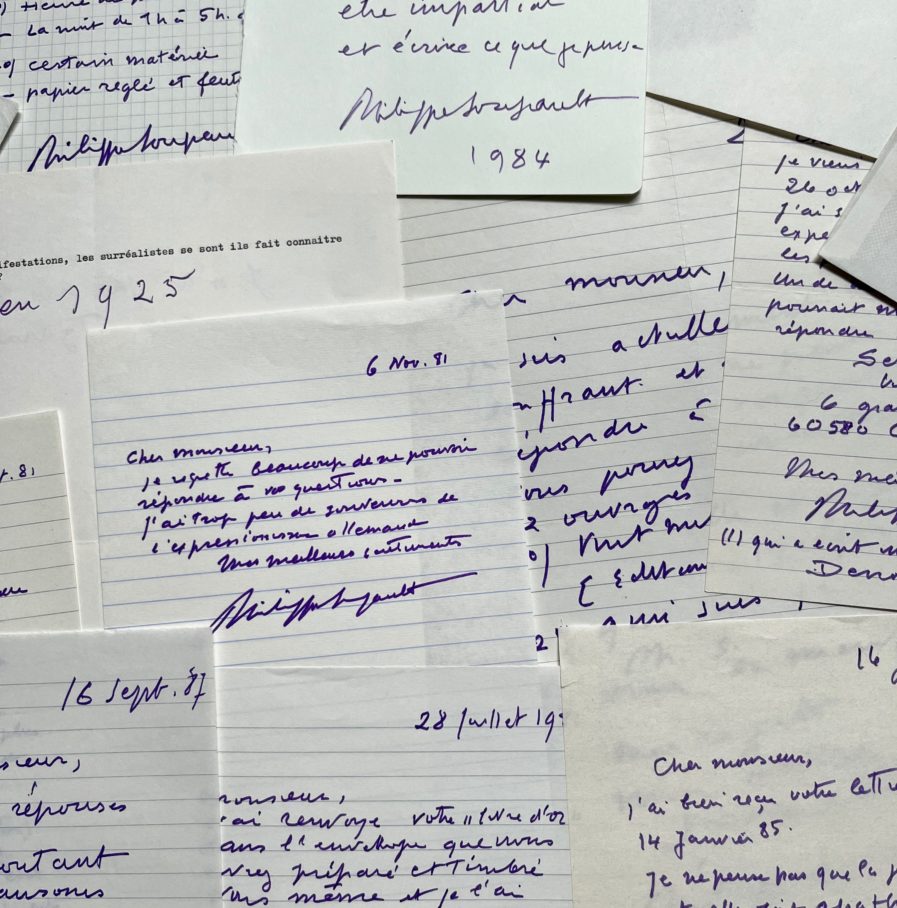 - La nuit de 1h à 5h.
certain matériel
- papier réglé et feut
Philippe Soupau
être impartial
et écrire ce que je pense
Philippe Soupault
1984
ifestations, les surréalistes se sont ils fait connaitre
?
en 1925
6 Nov. 81
Cher monsieur,
je regrette beaucoup de ne pouvoir
répondre à vos questions -
j'ai trop peu de souvenirs de
l'expressionisme allemand
Mes meilleurs sentiments
Philippe Soupault
monsieur,
suis actuelle
ffrant. et
épondre à
ous pouvez
2 ouvrages
[ Edition
qui suis
2
je viens
26 oct
j'ai
expe
les
un de
pourrait
répondre
Se
6 gra
60580 C
Mes me
Philip
(1) qui a écrit
t. 81
16 Sept. 87
sieur,
réponses
outant
28 Juillet 19
monsieur,
ai renvoyé votre "livre d'or
ans l'enveloppe que vous
vez préparé et timbré
ous même et je l'ai
14
Cher monsieur,
j'ai bien reçu votre lettre
14 Janvier 85.
Je ne pense pas que la p